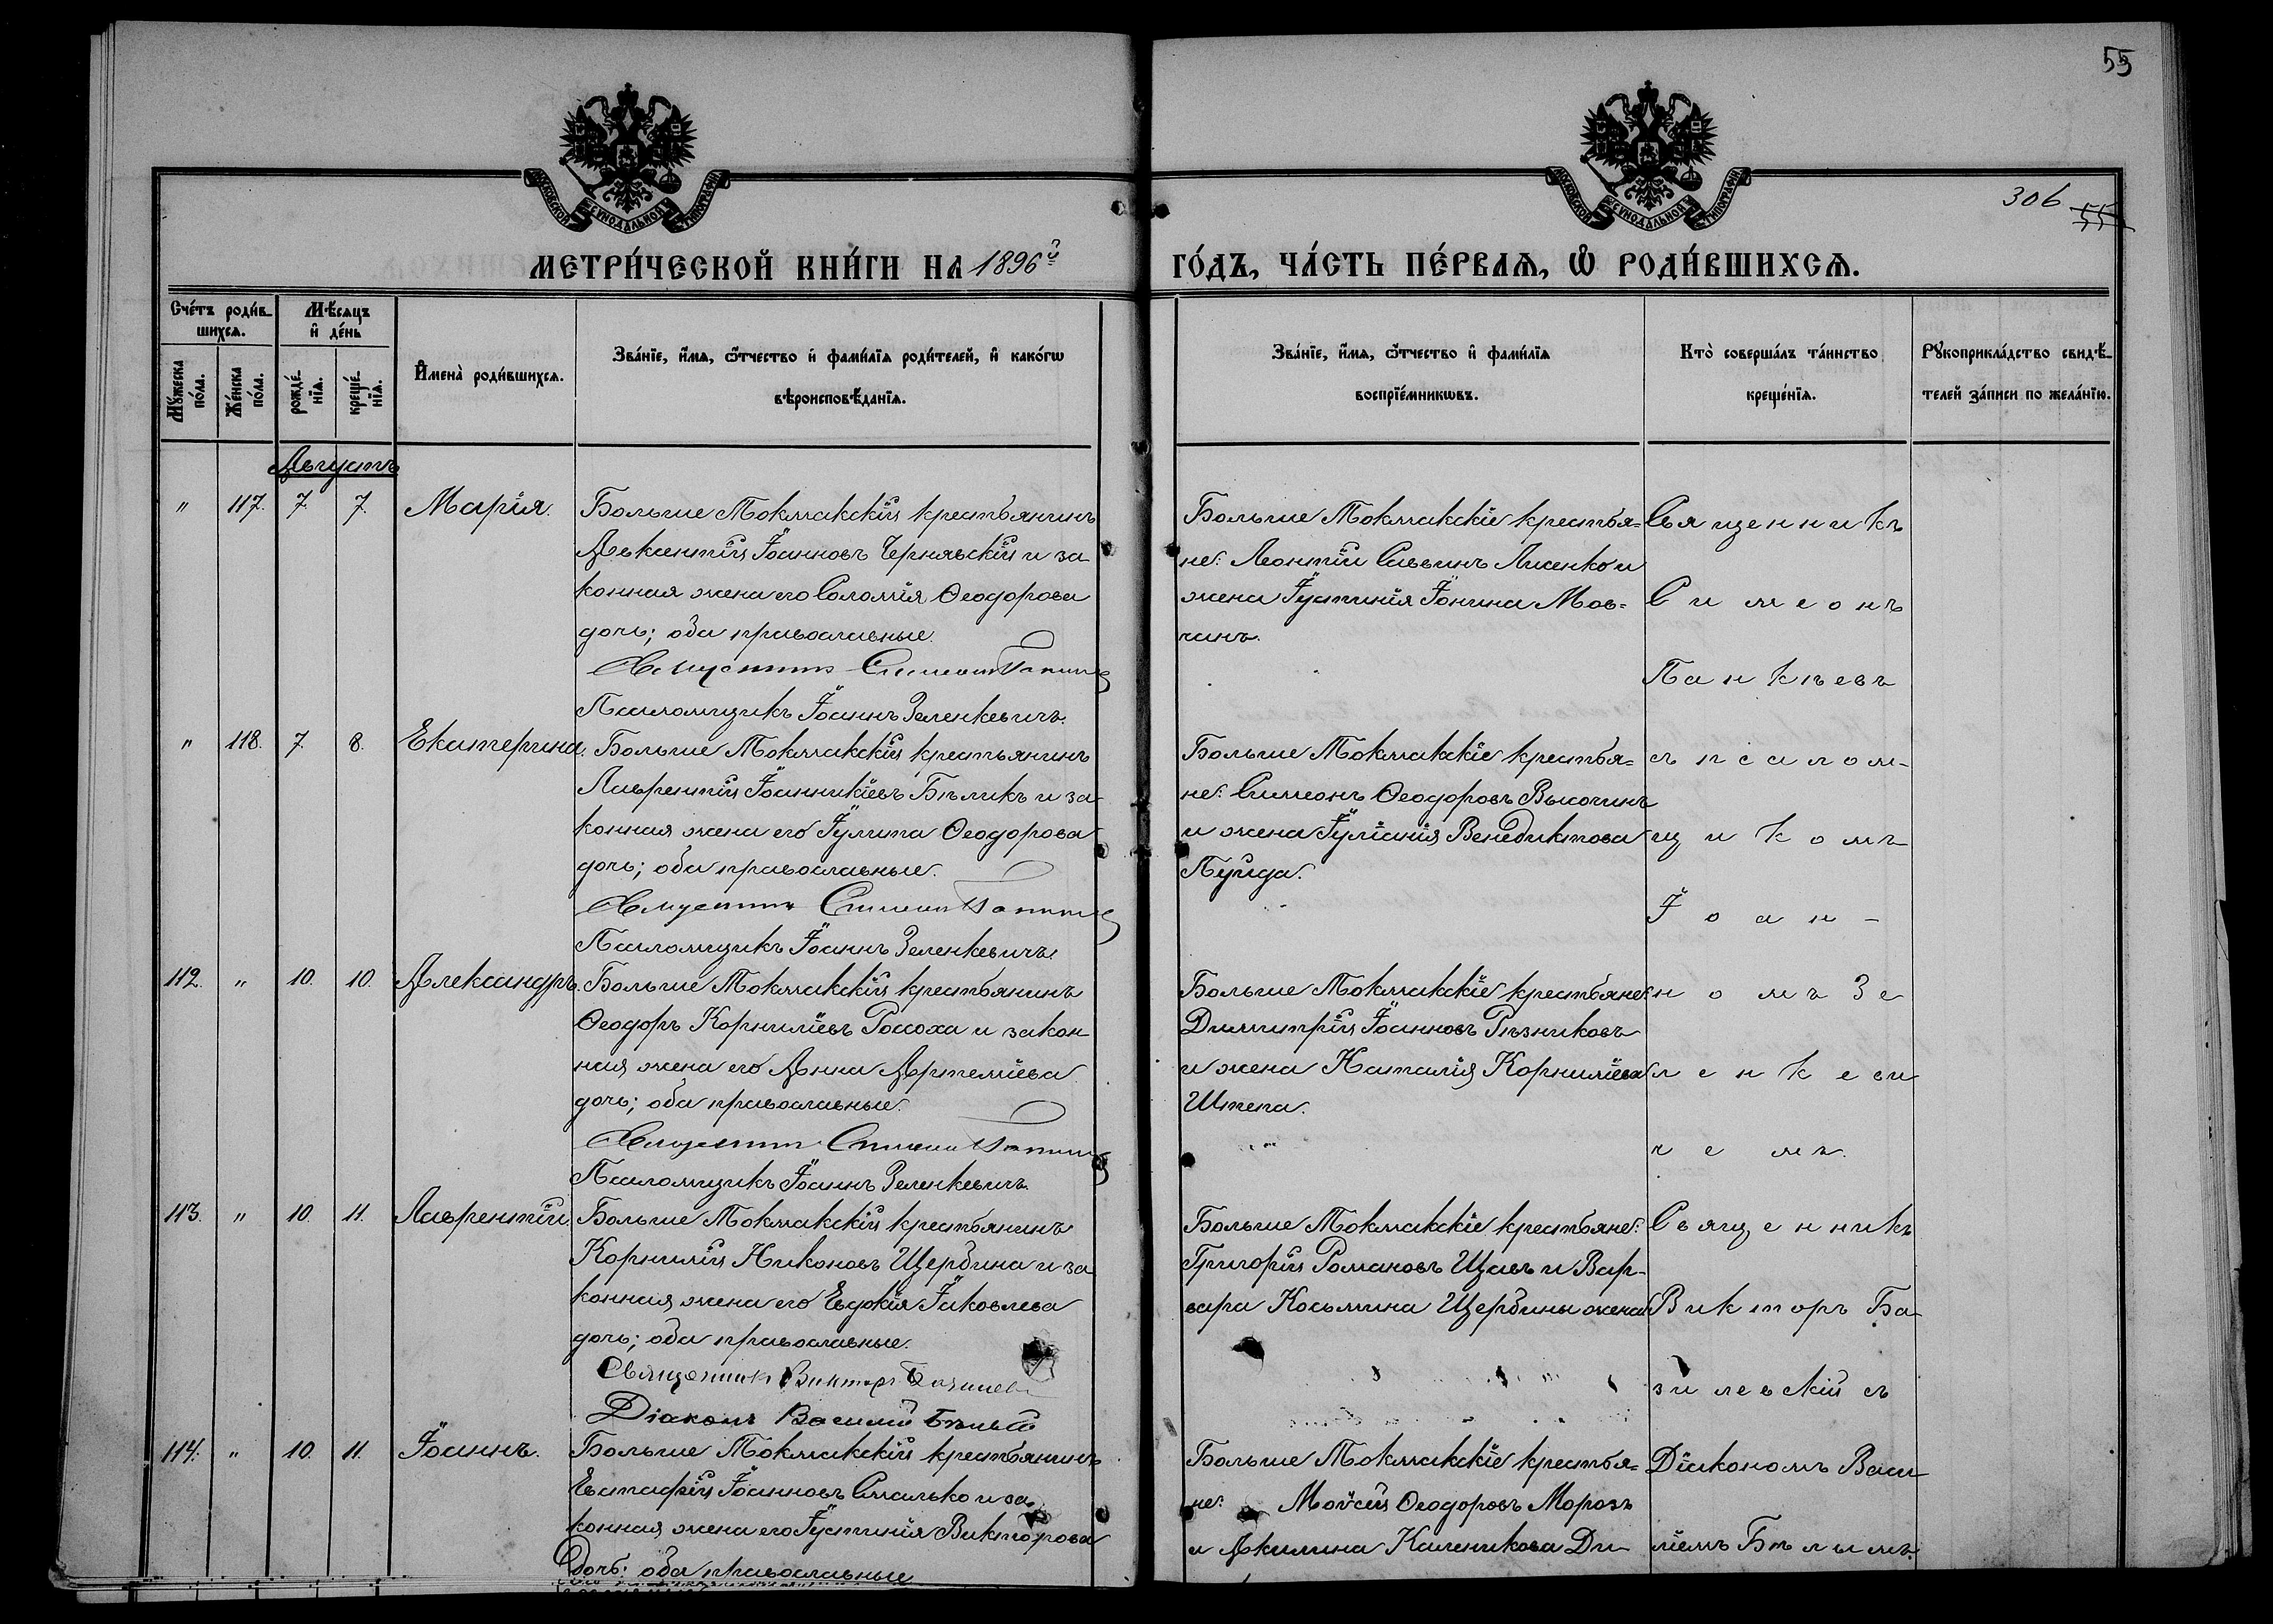 55
306
55
МОСКОВСКОЙ СѴНОДАЛЬНОЙ ТИПОГРАФІИ
МОСКОВСКОЙ СѴНОДАЛЬНОЙ ТИПОГРАФІИ
МЕТРИ́ЧЕСКОЙ КНИ́ГИ НА 1896й
ГО́ДЪ, ЧА́СТЬ ПЕ́РВАѦ, Ѡ РОДИ́ВШИХСѦ.
Сче́тъ роди́в-
шихсѧ.
Мѣ́сяцъ
и де́нь
Мꙋ́жеска
по́ла.
Же́нска
по́ла.
рожде́-
нїѧ.
креще́-
нїѧ.
И҆мена̀ роди́вшихсѧ.
Зва́нїе, и҆́мѧ, ѻ҆́тчество и҆ фами́лїѧ роди́телей, и҆ како́гѡ
вѣроисповѣ́данїѧ.
Зва́нїе, и҆́мѧ, ѻ҆́тчество и҆ фами́лїѧ
воспрїе́мникѡвъ.
Кто̀ соверша́лъ та́инство
креще́нїѧ.
Рꙋкоприкла́дство свидѣ́-
телей за́писи по жела́нїю.
Августъ
" 117. 7. 7. Марія.
Больше Токмакскій крестьянинъ
Авксентій Іоанновъ Чернявскій и за
конная жена его Соломія Ѳеодорова
дочь; оба православные.
Псаломщикъ Іоаннъ Зеленкевичъ.
Больше Токмакскіе крестья=
не: Леонтій Саввинъ Лисенко и
жена Іустинія Іонина Мов=
чанъ.
Священникъ
Симеонъ
Панкѣевъ
" 118. 7. 8. Екатерина.
Больше Токмакскій крестьянинъ
Лаврентій Іоанникіевъ Бѣликъ и за
конная жена его Іулита Ѳеодорова
дочь; оба православные.
Псаломщикъ Іоаннъ Зеленкевичъ
Больше Токмакскіе крестья=
не: Симеонъ Ѳеодоровъ Высочинъ
и жена Іуліанія Венедиктова
съ псалом-
щикомъ
Іоан-
112. " 10. 10. Александръ.
Больше Токмакскій крестьянинъ
Ѳеодоръ Корниліевъ Россоха и закон
ная жена его Анна Артеміева
дочь; оба православные.
Псаломщикъ Іоаннъ Зеленкевичъ.
Больше Токмакскіе крестьяне:
Димитрій Іоанновъ Рѣзниковъ
и жена Наталія Корниліева
Штепа.
номъ Зе
ленкеви
чемъ.
113. " 10. 11. Лаврентій.
Больше Токмакскій крестьянинъ
Корнилій Никоновъ Щербина и за
конная жена его Евдокія Іаковлева
дочь; оба православные.
Священникъ Викторъ
Діаконъ Василій Бѣлый
Больше Токмакскіе крестьяне:
Григорій Романовъ Щавъ и Вар-
вара Косьмина Щербины жена
Священникъ
Викторъ Ба
зилевскій съ
114. " 10. 11. Іоаннъ.
Больше Токмакскій крестьянинъ
Евстафій Іоанновъ Смалько и за
конная жена его Іустинія Викторова
дочь; оба православные
Больше Токмакскіе крестья=
не: Моѵсей Ѳеодоровъ Морозъ
и Акилина Каленикова Ди
Діакономъ Васи
ліемъ Бѣлымъ.